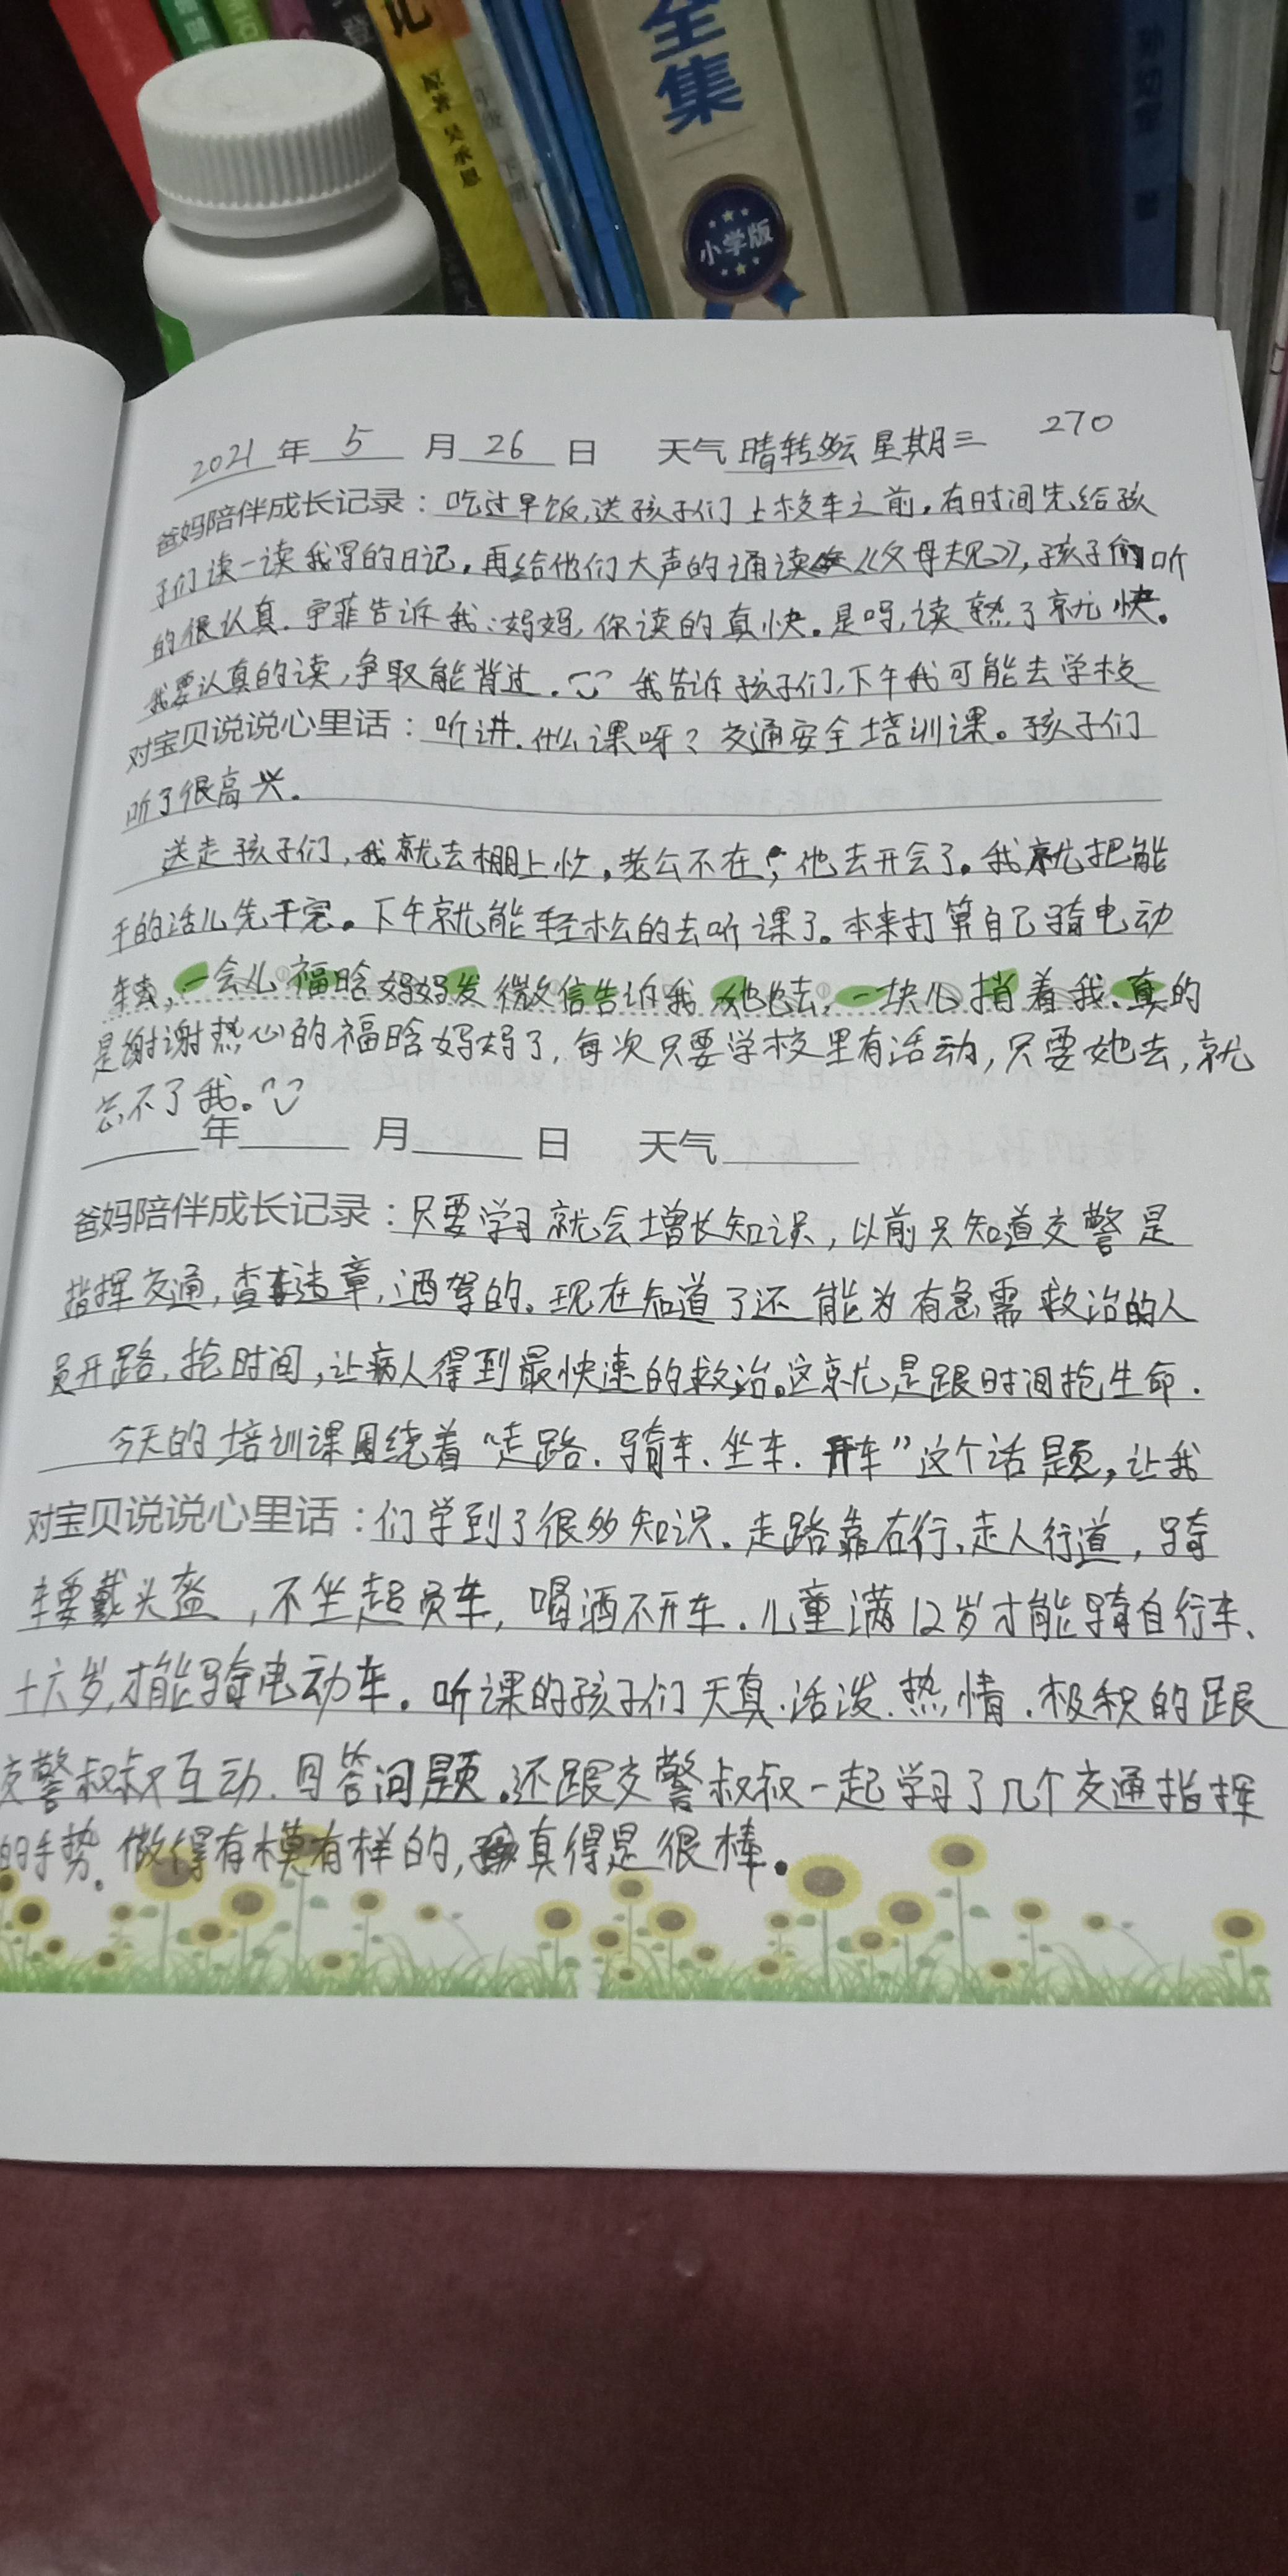 记
原著 吴承恩
全集
小学版
270
2021年 5 月 26 日 天气 晴转多云 星期三
爸妈陪伴成长记录：吃过早饭,送孩子们上校车之前,有时间先给孩
子们读一读我写的日记,再给他们大声的诵读《父母规》,孩子们听
的很认真.宇菲告诉我:妈妈,你读的真快.是吗,读熟了就快。
我要认真的读,争取能背过. 我告诉孩子们,下午我可能去学校
对宝贝说说心里话：听讲.什么课呀？交通安全培训课。孩子们
听了很高兴.
送走孩子们,我就去棚上忙.老公不在,他去开会了。我就把能
干的活儿先干完。下午就能轻松的去听课了。本来打算自己骑电动
车去,一会儿福晗妈妈发微信告诉我她也去,一块儿捎着我.真的
是谢谢热心的福晗妈妈了,每次只要学校里有活动,只要她去,就
忘不了我。
年 月 日 天气
爸妈陪伴成长记录：只要学习就会增长知识,以前只知道交警是
指挥交通,查车违章,酒驾的.现在知道了还能为有急需救治的人
员开路.抢时间,让病人得到最快速的救治。这就是跟时间抢生命.
今天的培训课围绕着“走路.骑车、坐车.开车”这个话题,让我
对宝贝说说心里话：们学到了很多知识.走路靠右行,走人行道,骑
车要戴头盔,不坐超员车,喝酒不开车.儿童满12岁才能骑自行车、
十六岁,才能骑电动车。听课的孩子们天真.活泼.热情.极积的跟
交警叔叔互动.回答问题.还跟交警叔叔一起学习了几个交通指挥
的手势.做得有模有样的,真得是很棒。